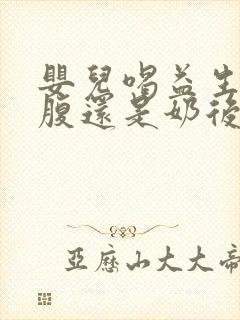 嬰兒喝益生
腹還是奶後
亞歷山大大帝